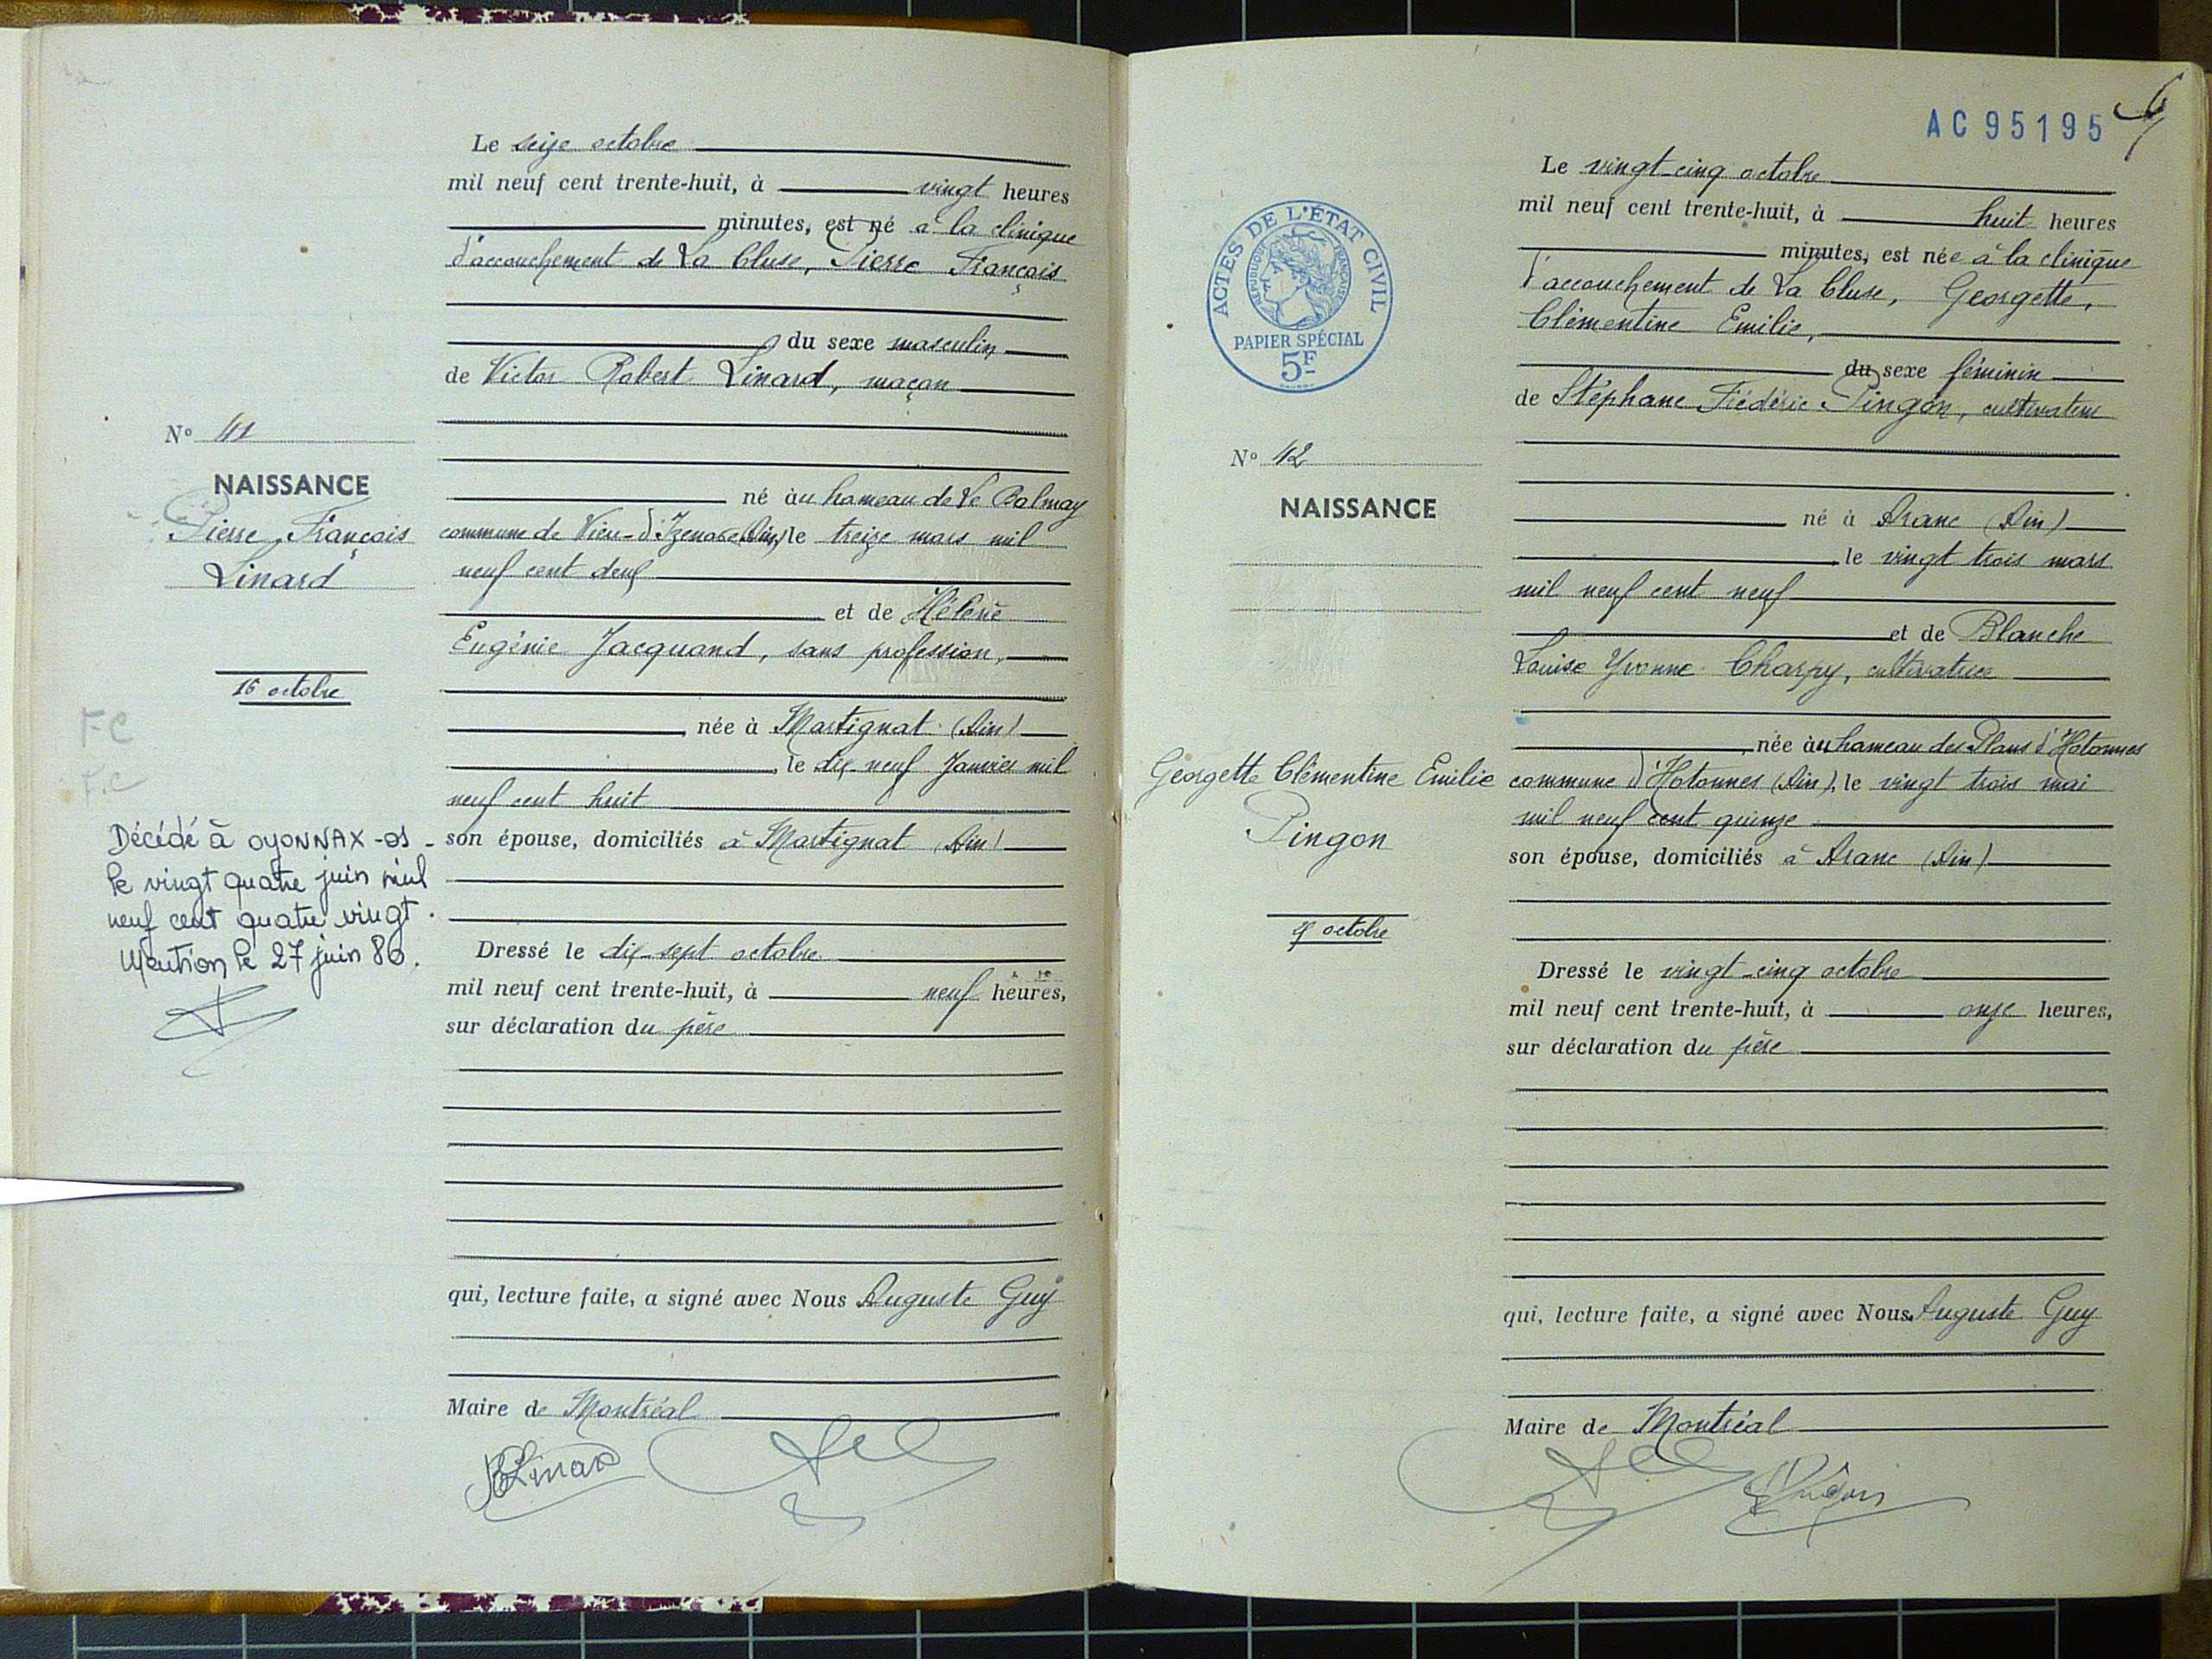 Le seize octobre
mil neuf cent trente-huit, à vingt heures
minutes, est né à la clinique
d'accouchement de La Cluse, Pierre François
du sexe masculin
de Victor Robert Linard, maçon
N° 41
NAISSANCE
Pierre François
Linard
16 octobre
né au hameau de Le Balmay
commune de Vieu-d'Izenave (Ain) le treize mars mil
neuf cent deux
et de Hélène
Eugénie Jacquand, sans profession,
née à Martignat (Ain)
le dix neuf Janvier mil
neuf cent huit
son épouse, domiciliés à Martignat (Ain)
F C
F.C
Décédé à OYONNAX -01-
le vingt quatre juin mil
neuf cent quatre vingt.
Mention le 27 juin 80.
Dressé le dix-sept octobre
mil neuf cent trente-huit, à neuf heures,
sur déclaration du père
qui, lecture faite, a signé avec Nous Auguste Guy
Maire de Montréal
Linard
AC 95195
ACTES DE L'ÉTAT CIVIL
RÉPUBLIQUE FRANÇAISE
PAPIER SPÉCIAL
5F
Le vingt-cinq octobre
mil neuf cent trente-huit, à huit heures
minutes, est née à la clinique
d'accouchement de La Cluse, Georgette,
Clémentine Emilie,
du sexe féminin
de Stéphane Frédéric Pingon, cultivateur
N° 42
NAISSANCE
Georgette Clémentine Emilie
Pingon
octobre
né à Aranc (Ain)
le vingt trois mars
mil neuf cent neuf
et de Blanche
Louise Yvonne Charpy, cultivatrice
née au hameau des Plans d'Hotonnes
commune d'Hotonnes (Ain), le vingt trois mai
mil neuf cent quinze
son épouse, domiciliés à Aranc (Ain)
Dressé le vingt-cinq octobre
mil neuf cent trente-huit, à onze heures,
sur déclaration du père
qui, lecture faite, a signé avec Nous Auguste Guy
Maire de Montréal
Pingon